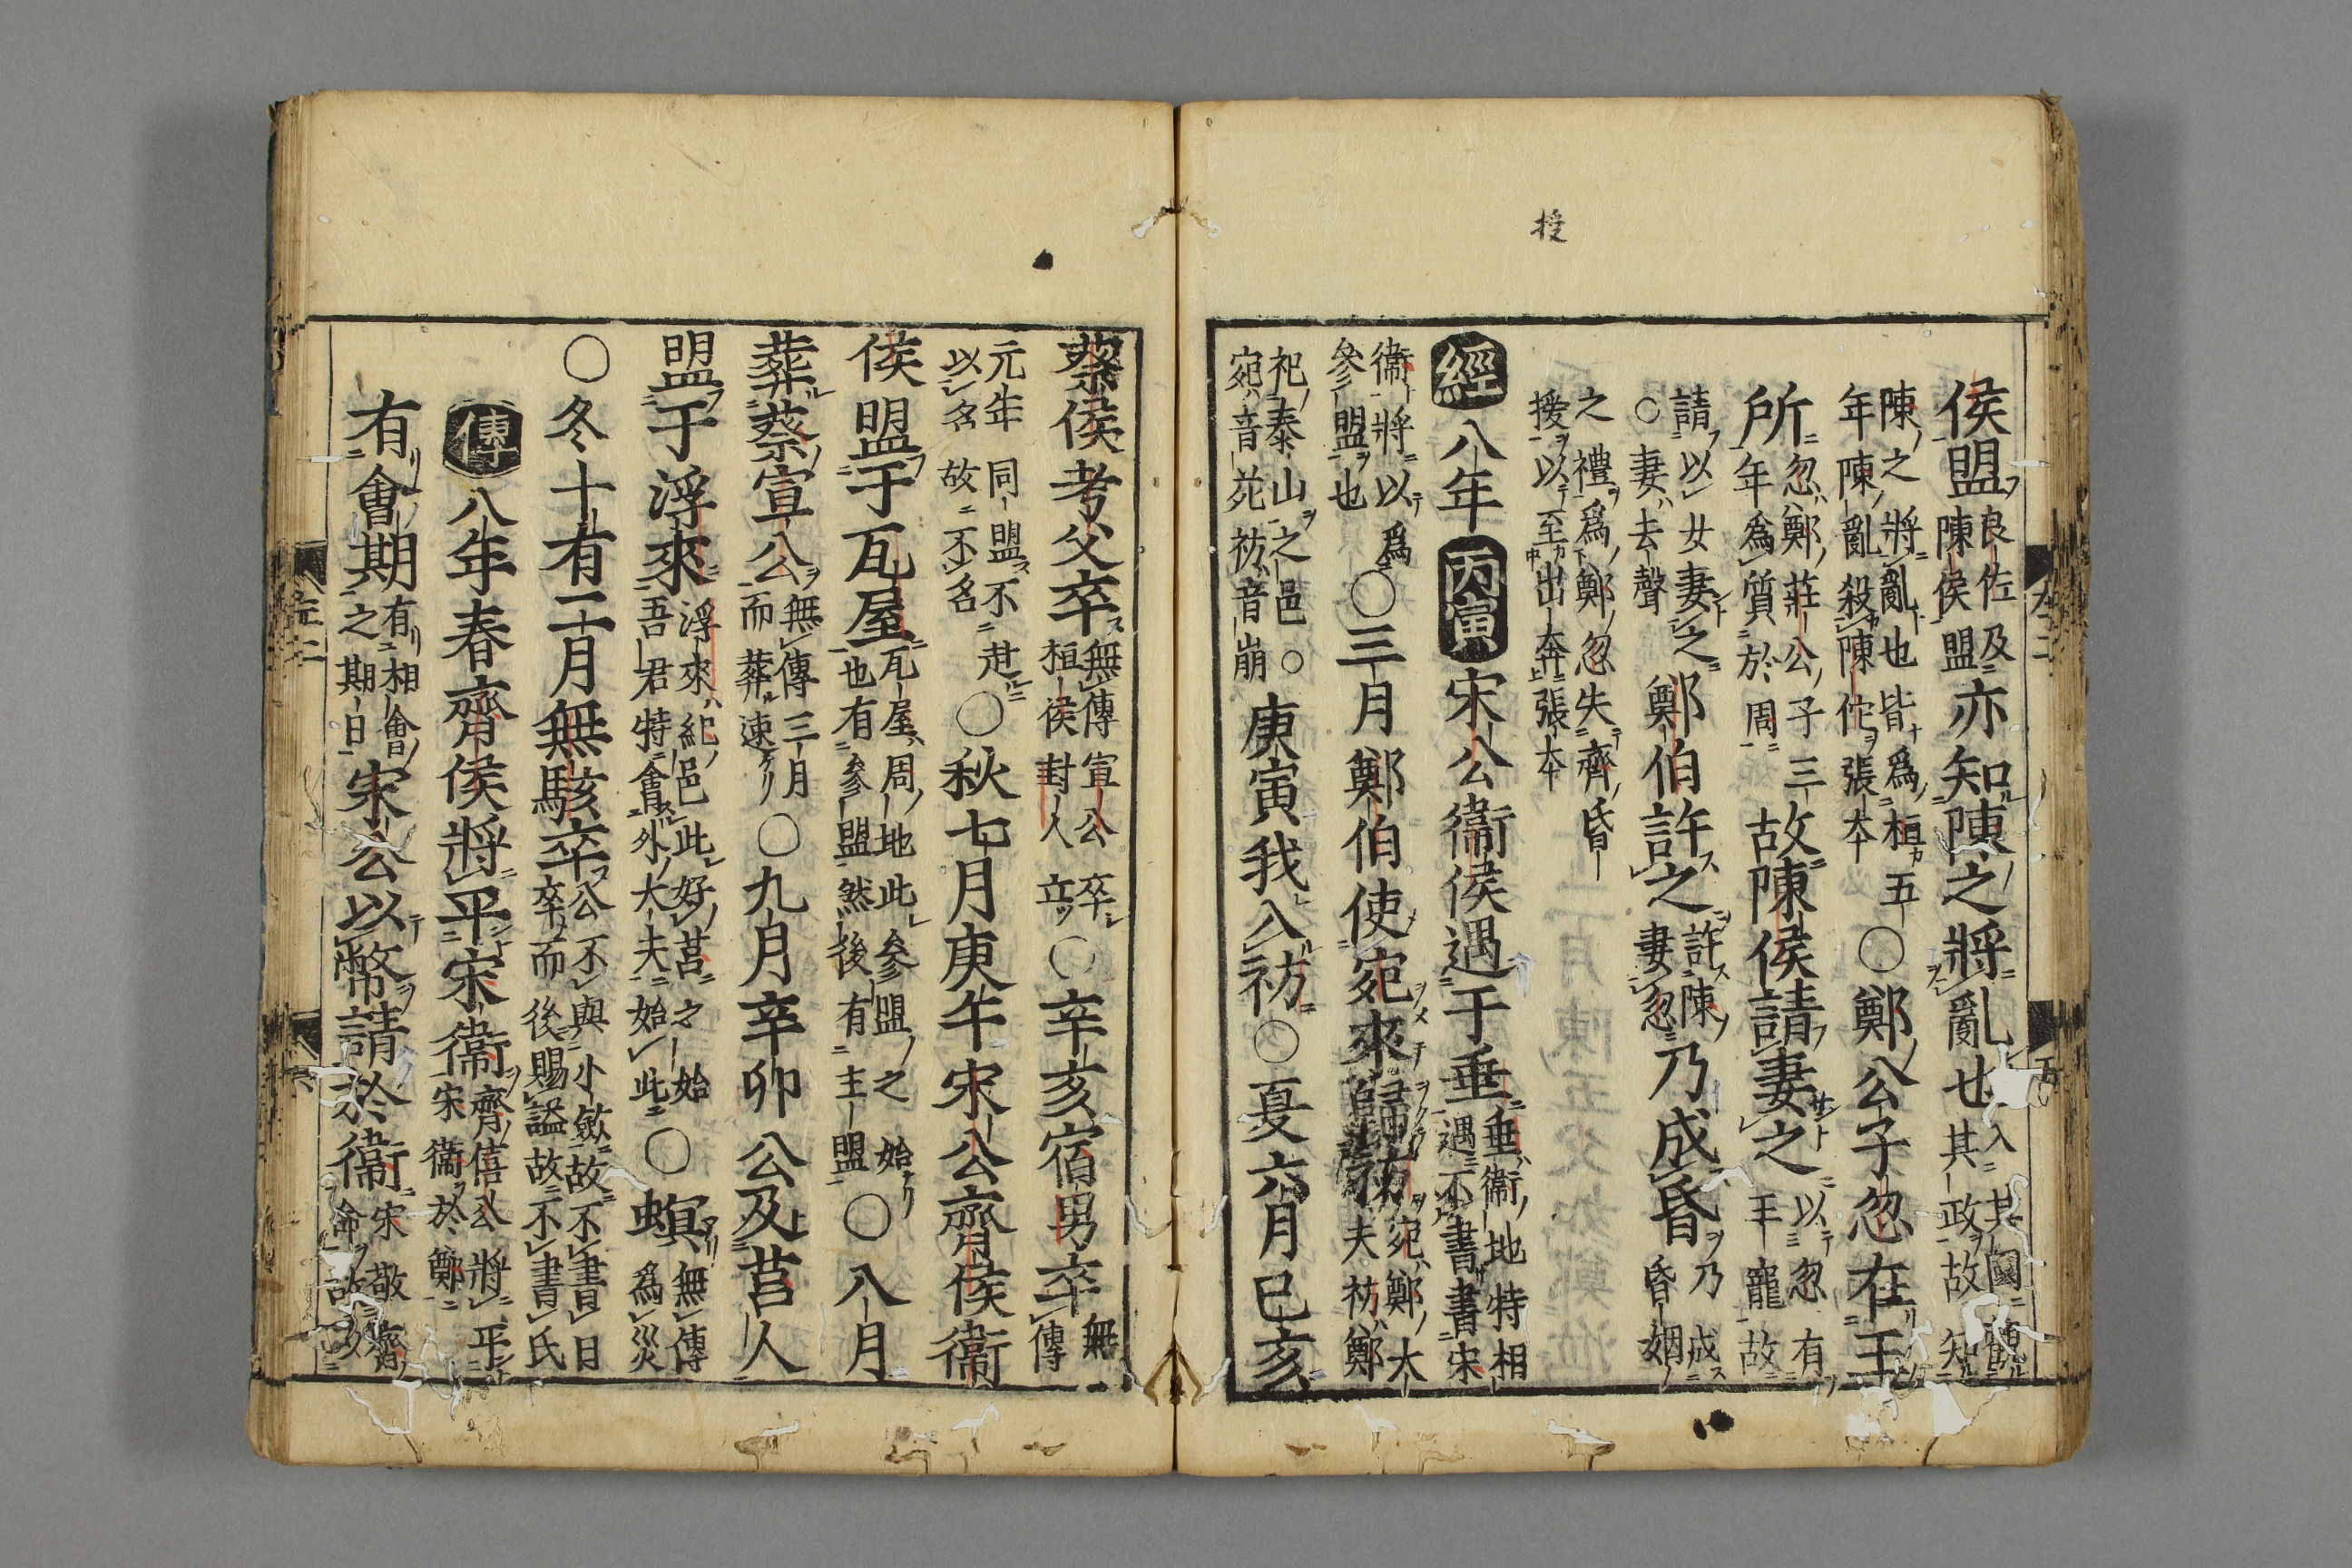 援
侯盟良佐及陳侯盟亦知陳之將亂也入其國觀其政故知
陳之將亂也皆爲桓五年陳亂殺陳佗張本○鄭公子忽在王
所忽鄭莊公子三年爲質於周故陳侯請妻之以忽有王寵故
請以女妻之○妻去聲鄭伯許之許陳妻忽乃成昏乃成昏姻
之禮爲鄭忽失齊昏援以至出奔張本
經八年丙寅宋公衛侯遇于垂垂衛地特相遇不書書宋
衛將以爲參盟也○三月鄭伯使宛來歸祊宛鄭大夫祊鄭
祀泰山之邑○宛音苑祊音崩庚寅我入祊○夏六月己亥
蔡侯考父卒無傳宣公卒桓侯封人立○辛亥宿男卒無傳
元年同盟不赴以名故不名○秋七月庚午宋公齊侯衛
侯盟于瓦屋瓦屋周地此參盟之始也有參盟然後有主盟○八月
葬蔡宣公無傳三月而葬速○九月辛卯公及莒人
盟于浮來浮來紀邑此好莒之始吾君特會外大夫始此○螟無傳爲災
○冬十有二月無駭卒公不與小斂故不書日卒而後賜謚故不書氏
傳八年春齊侯將平宋衛齊僖公將平宋衛於鄭
有會期有相會之期日宋公以幣請於衛宋敬齊命故以